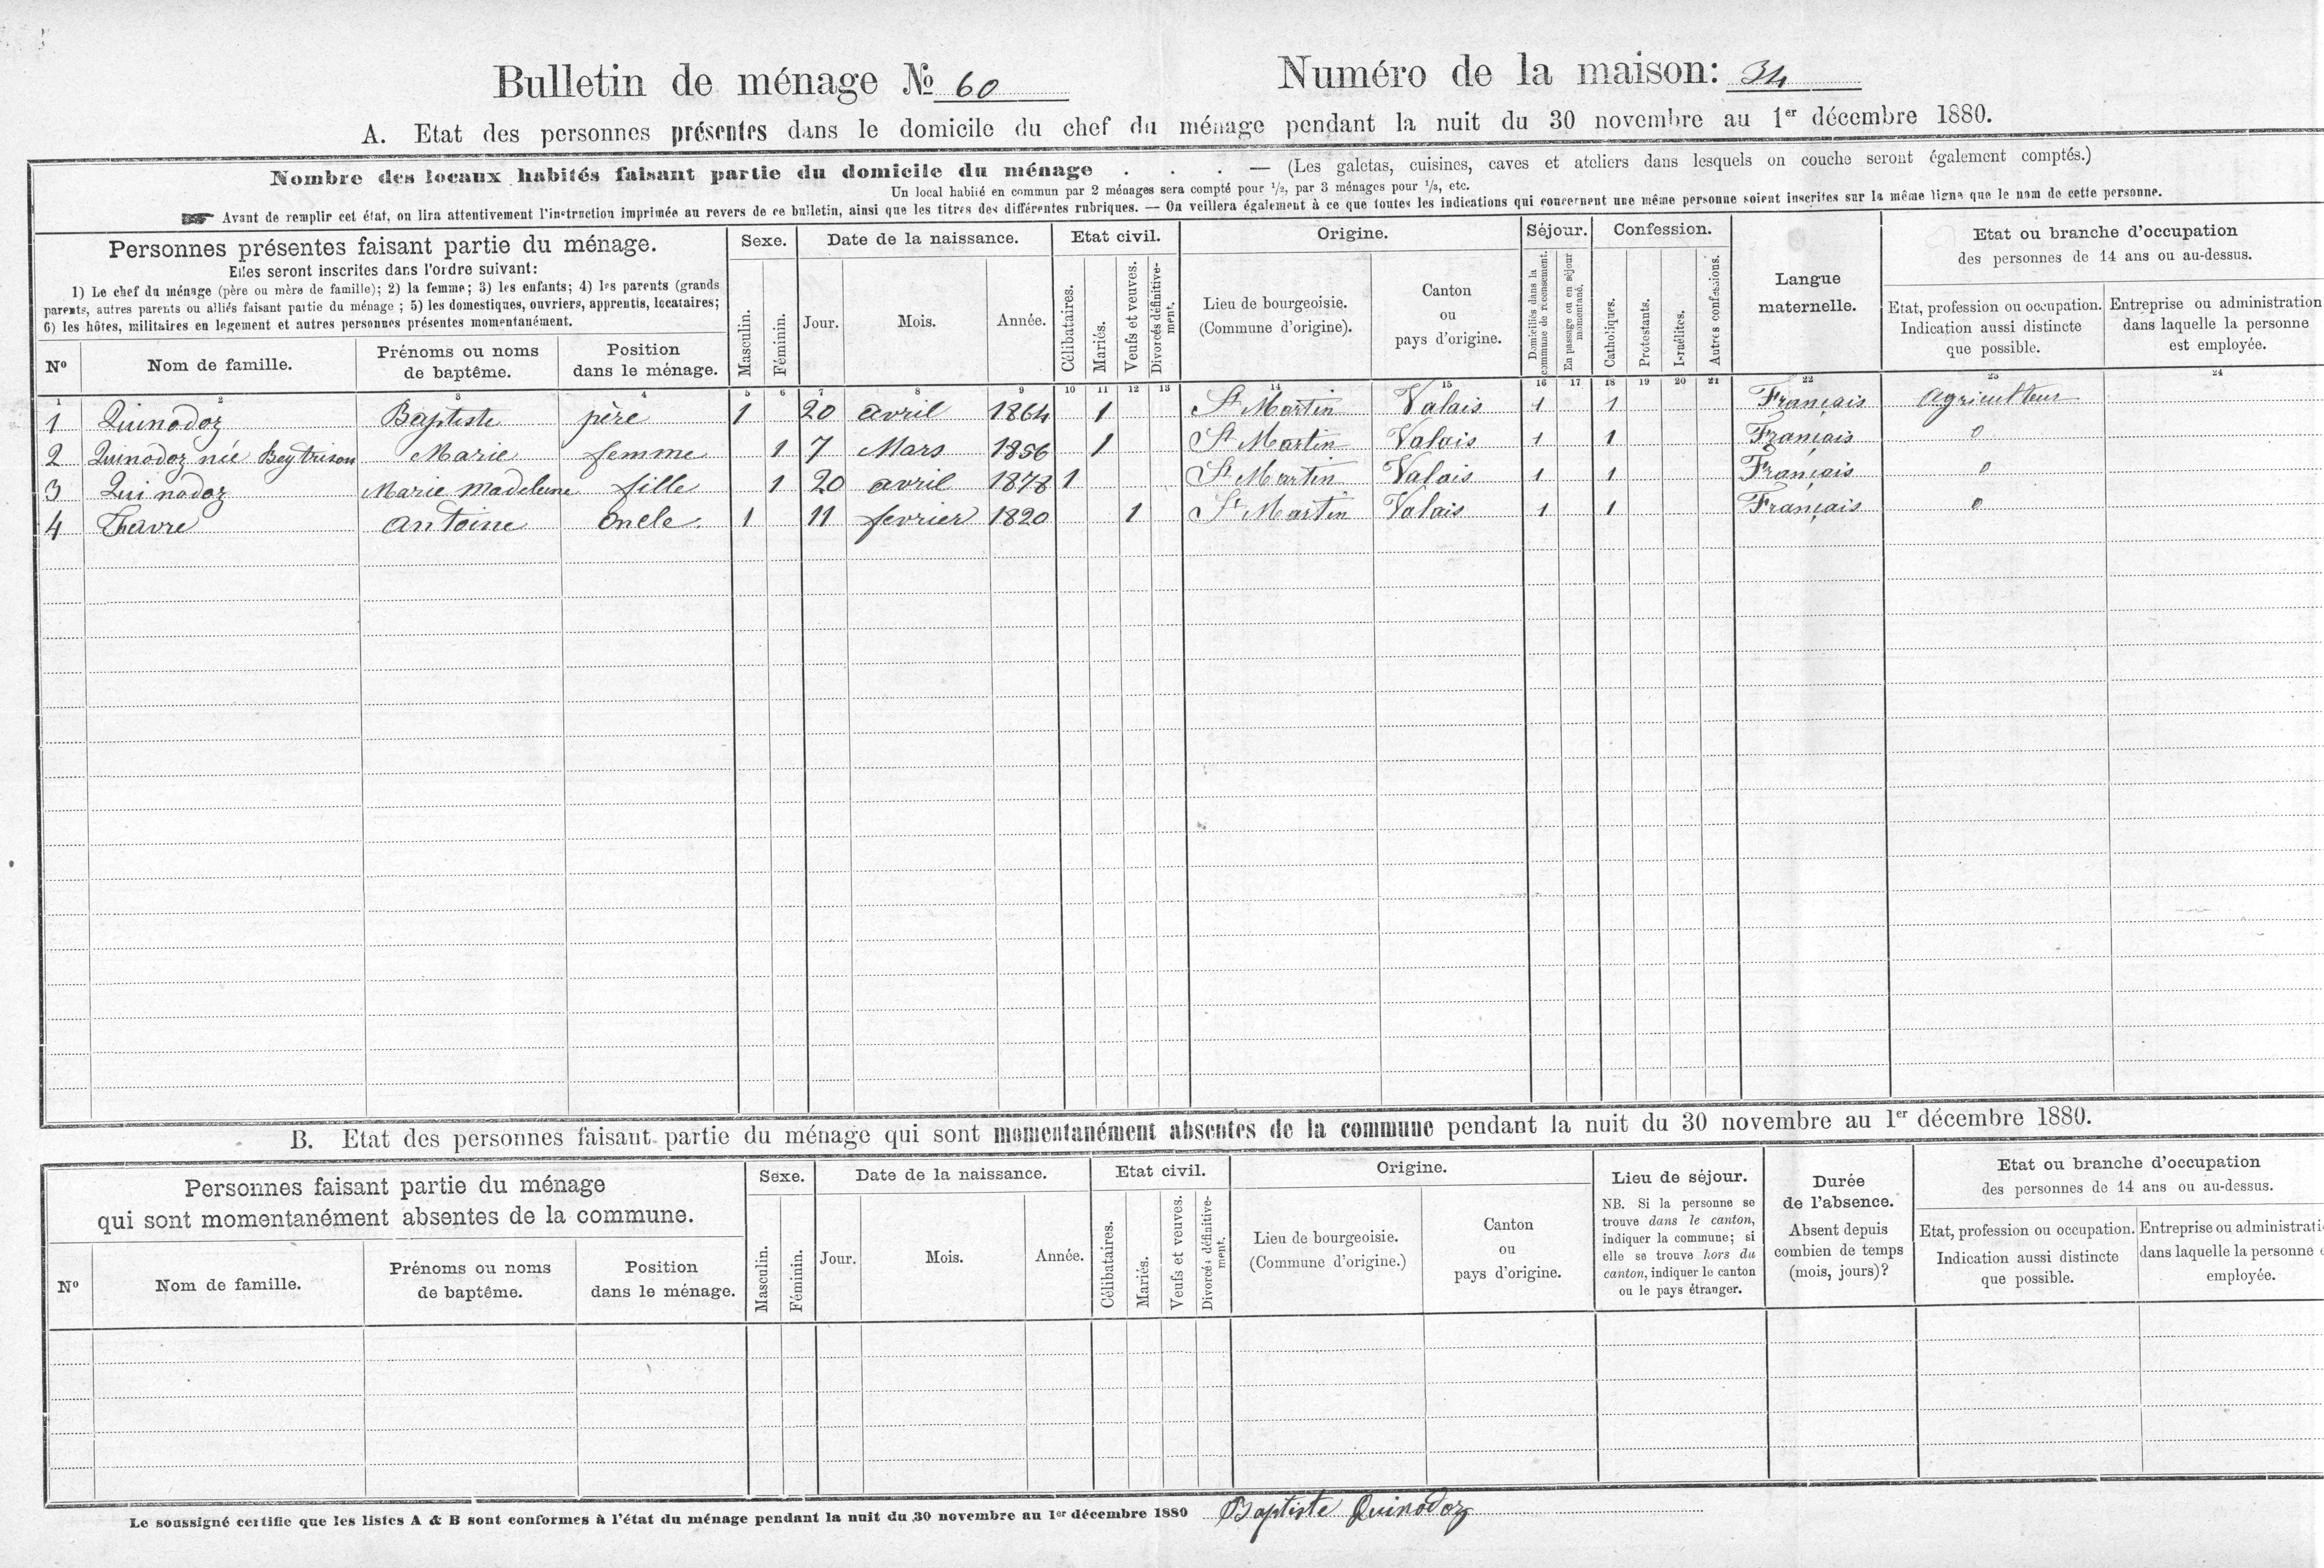 Bulletin de ménage № 60
Numéro de la maison: 34
A. Etat des personnes présentes dans le domicile du chef du ménage pendant la nuit du 30 novembre au 1er décembre 1880.
Nombre des locaux habités faisant partie du domicile du ménage . . . — (Les galetas, cuisines, caves et ateliers dans lesquels on couche seront également comptés.)
Un local habité en commun par 2 ménages sera compté pour 1/2, par 3 ménages pour 1/3, etc.
Avant de remplir cet état, on lira attentivement l'instruction imprimée au revers de ce bulletin, ainsi que les titres des différentes rubriques. — On veillera également à ce que toutes les indications qui concernent une même personne soient inscrites sur la même ligne que le nom de cette personne.
Personnes présentes faisant partie du ménage.
Elles seront inscrites dans l'ordre suivant:
1) Le chef du ménage (père ou mère de famille); 2) la femme; 3) les enfants; 4) les parents (grands
parents, autres parents ou alliés faisant partie du ménage ; 5) les domestiques, ouvriers, apprentis, locataires;
6) les hôtes, militaires en logement et autres personnes présentes momentanément.
No
Nom de famille.
Prénoms ou noms
de baptême.
Position
dans le ménage.
Sexe.
Masculin.
Féminin.
Date de la naissance.
Jour.
Mois.
Année.
Etat civil.
Célibataires.
Mariés.
Veufs et veuves.
Divorcés définitive-
ment.
Origine.
Lieu de bourgeoisie.
(Commune d'origine).
Canton
ou
pays d'origine.
Séjour.
Domiciliés dans la
commune de recensement.
En passage ou en séjour
momentané.
Confession.
Catholiques.
Protestants.
Israélites.
Autres confessions.
Langue
maternelle.
Etat ou branche d'occupation
des personnes de 14 ans ou au-dessus.
Etat, profession ou occupation.
Indication aussi distincte
que possible.
Entreprise ou administration
dans laquelle la personne
est employée.
1 2 3 4 5 6 7 8 9 10 11 12 13 14 15 16 17 18 19 20 21 22 23 24
1 Quinodoz Baptiste père 1 20 avril 1864 1 St Martin Valais 1 1 Français agriculteur
2 Quinodoz née Beytrison Marie femme 1 7 Mars 1856 1 St Martin Valais 1 1 Français 0
3 Quinodoz Marie Madeleine fille 1 20 avril 1878 1 St Martin Valais 1 1 Français 0
4 antoine oncle 1 11 fevrier 1820 1 St Martin Valais 1 1 Français 0
B. Etat des personnes faisant partie du ménage qui sont momentanément absentes de la commune pendant la nuit du 30 novembre au 1er décembre 1880.
Personnes faisant partie du ménage
qui sont momentanément absentes de la commune.
No
Nom de famille.
Prénoms ou noms
de baptême.
Position
dans le ménage.
Sexe.
Masculin.
Féminin.
Date de la naissance.
Jour.
Mois.
Année.
Etat civil.
Célibataires.
Mariés.
Veufs et veuves.
Divorcés définitive-
ment.
Origine.
Lieu de bourgeoisie.
(Commune d'origine.)
Canton
ou
pays d'origine.
Lieu de séjour.
NB. Si la personne se
trouve dans le canton,
indiquer la commune; si
elle se trouve hors du
canton, indiquer le canton
ou le pays étranger.
Durée
de l'absence.
Absent depuis
combien de temps
(mois, jours)?
Etat ou branche d'occupation
des personnes de 14 ans ou au-dessus.
Etat, profession ou occupation.
Indication aussi distincte
que possible.
Entreprise ou administrati
dans laquelle la personne e
employée.
Le soussigné certifie que les listes A & B sont conformes à l'état du ménage pendant la nuit du 30 novembre au 1er décembre 1880 Baptiste Quinodoz